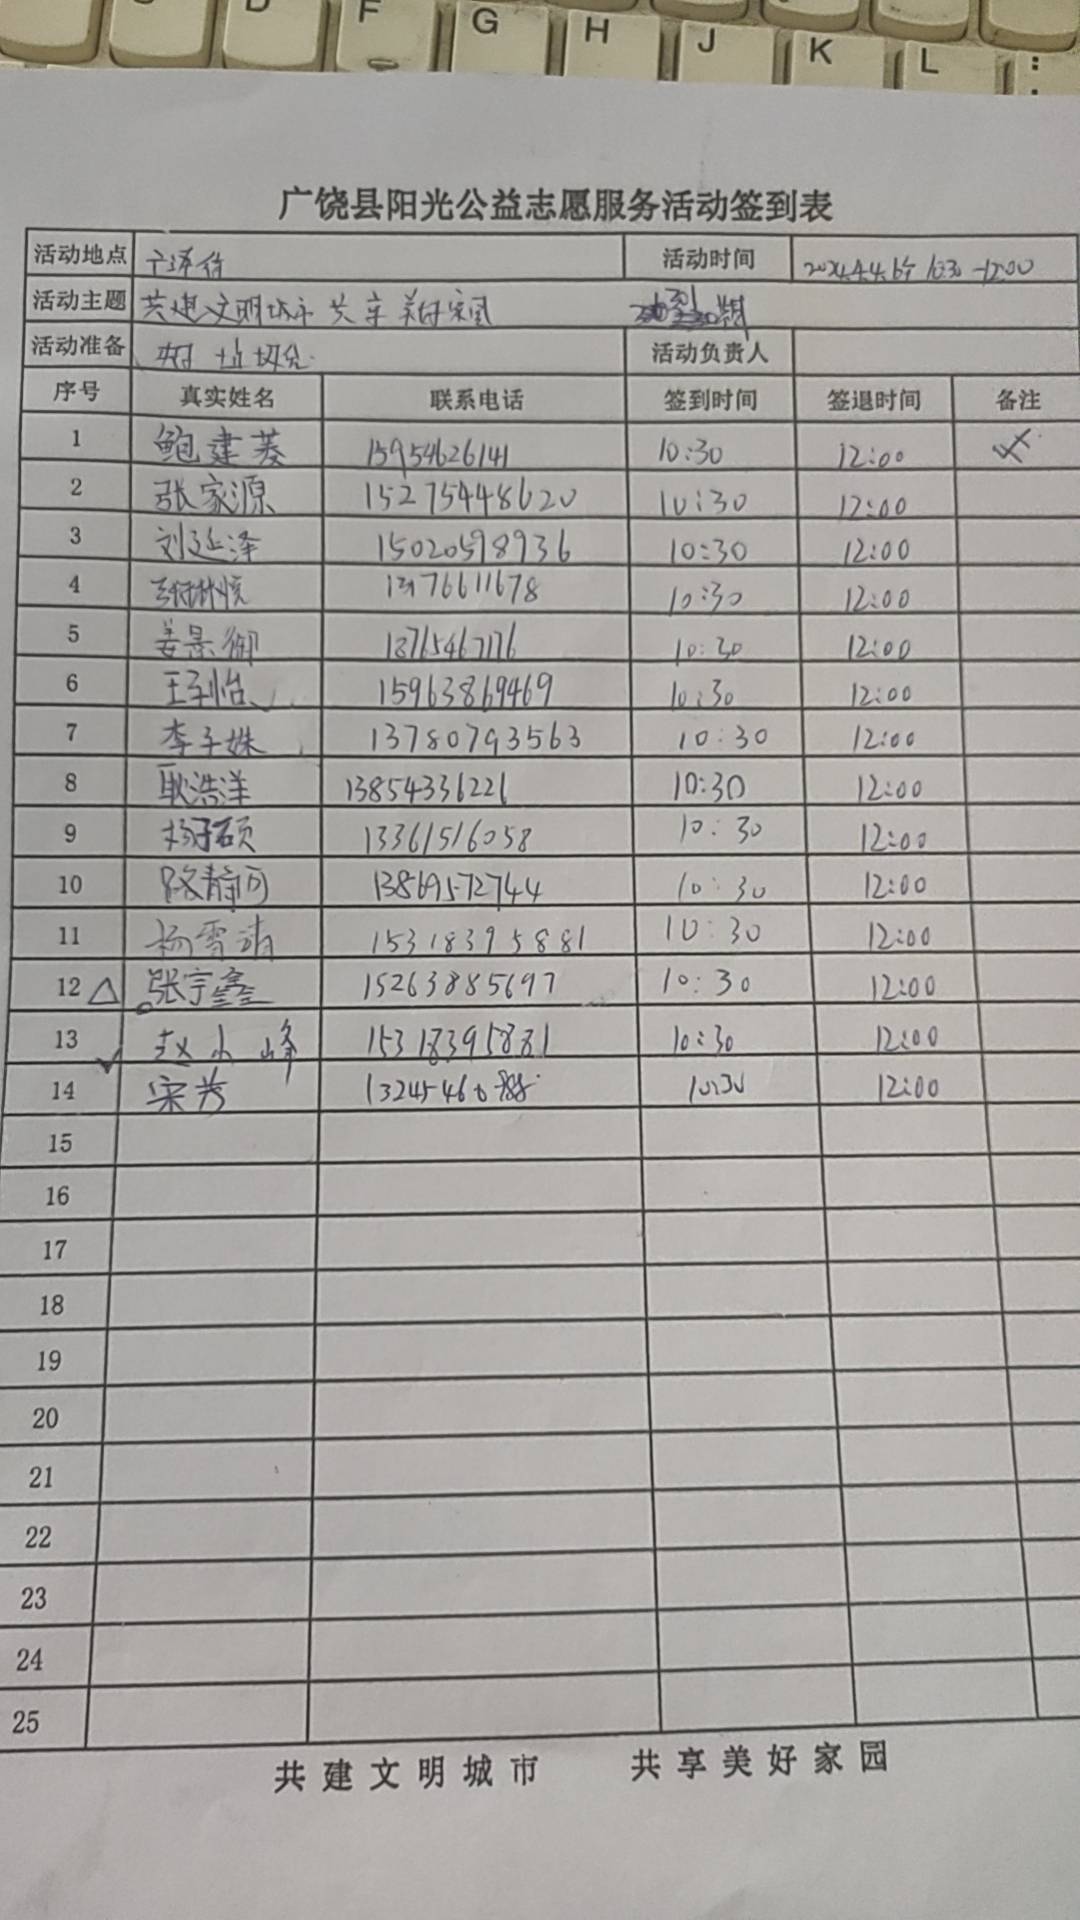 D F G H J K L
广饶县阳光公益志愿服务活动签到表
活动地点 活动时间 10:30-12:00
活动主题 共建文明城市 共享美好家园
活动准备 活动负责人
序号 真实姓名 联系电话 签到时间 签退时间 备注
1 鲍建菱 15954626141 10:30 12:00
2 张家源 15275448620 10:30 12:00
3 刘延泽 15020598936 10:30 12:00
4 10:30 12:00
5 姜景御 18765467176 10:30 12:00
6 王子怡 15963869469 10:30 12:00
7 李子姝 13780793563 10:30 12:00
8 耿浩洋 13854336221 10:30 12:00
9 杨子硕 13361516058 10:30 12:00
10 路静可 13869572744 10:30 12:00
11 杨雪清 15318395881 10:30 12:00
12 △ 张宇鑫 15263885697 10:30 12:00
13 ✓ 赵小峰 15318395881 10:30 12:00
14 宋芳 10:30 12:00
15
16
17
18
19
20
21
22
23
24
25
共建文明城市 共享美好家园